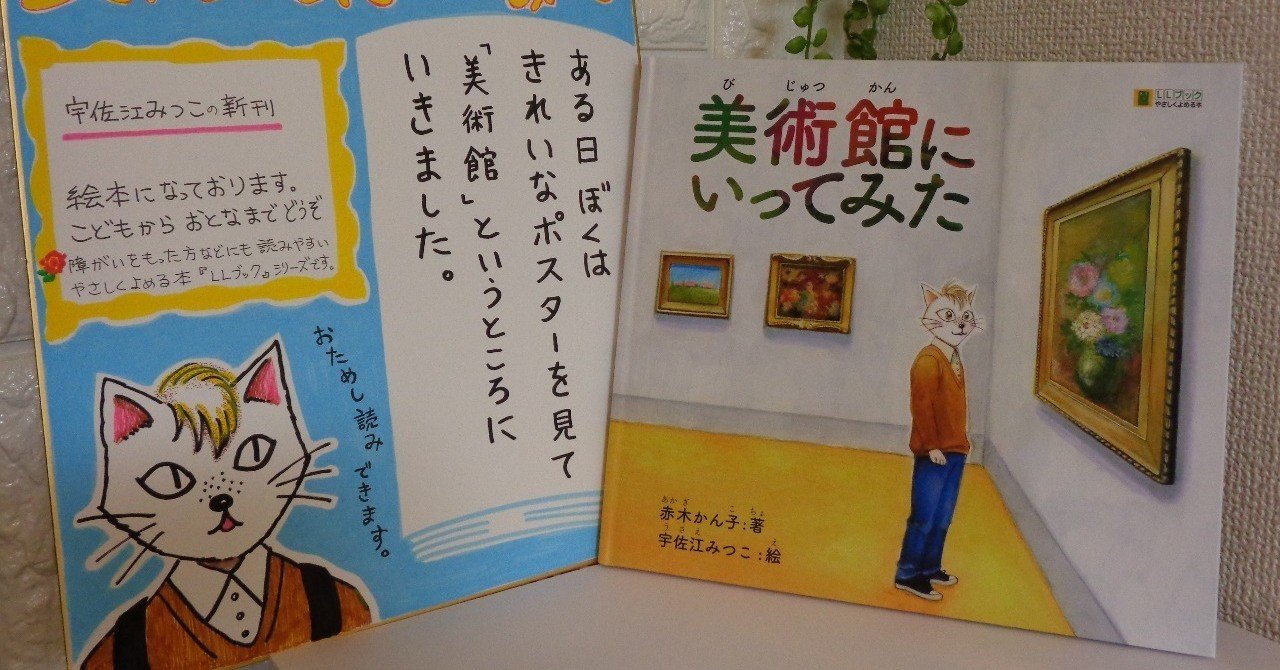 宇佐江みつこの新刊
絵本になっております。
こどもから おとなまで どうぞ
障がいをもった方などにも 読みやすい
やさしくよめる本『LLブック』シリーズです。
おためし読みできます。
ある日 ぼくは
きれいなポスターを見て
「美術館」というところに
いきました。
び じゅつ かん
美術館に
いってみた
LLブック
やさしくよめる本
あかぎ こ ちょ
赤木かん子:著
うさえ え
宇佐江みつこ:絵